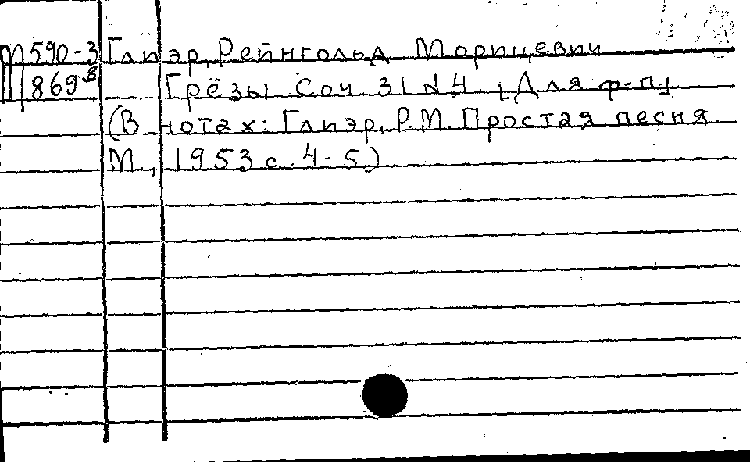 М590-3 Глиэр, Рейнгольд Морицевич
869 Грёзы Соч. 31 №4 [Для ф-п]
(В нотах: Глиэр, Р.М. Простая песня.
М., 1953 с. 4-5)